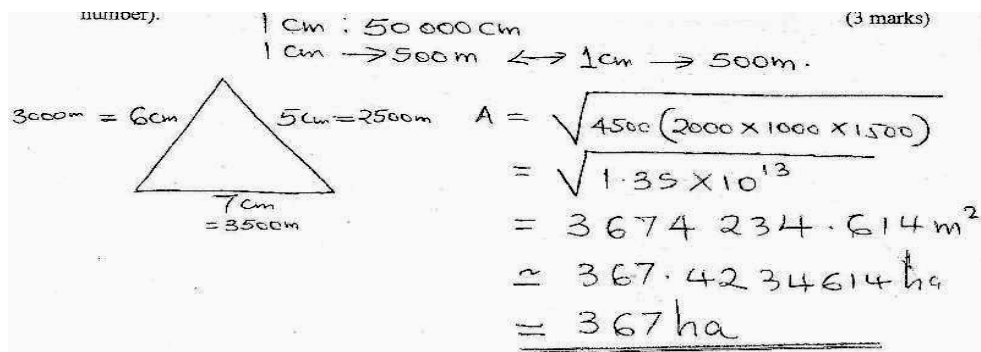 number).
(3 marks)
1 cm : 50 000 cm
1 cm → 500 m ↔ 1 cm → 500m.
3000m = 6cm
5cm = 2500m
7 cm
= 3500m
A = √4500(2000 × 1000 × 1500)
= √1.35 × 10¹³
= 3674 234.614 m²
≃ 367.4234614 ha
= 367 ha